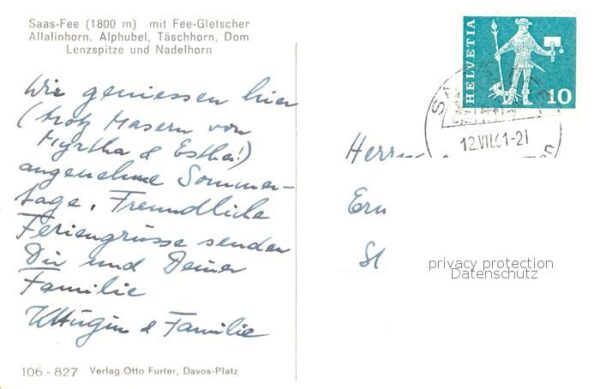 Saas-Fee (1800 m) mit Fee-Gletscher
Allalinhorn, Alphubel, Täschhorn, Dom
Lenzspitze und Nadelhorn
Wir geniessen hier
(trotz Masern von
Myrtha & Esther!)
angenehme Sommer-
tage. Freundliche
Feriengrüsse senden
Dir und Deiner
Familie
& Familie
106 - 827 Verlag Otto Furter, Davos-Platz
HELVETIA
10
12.VII.61-21
Herrn
Ern
St
privacy protection
Datenschutz